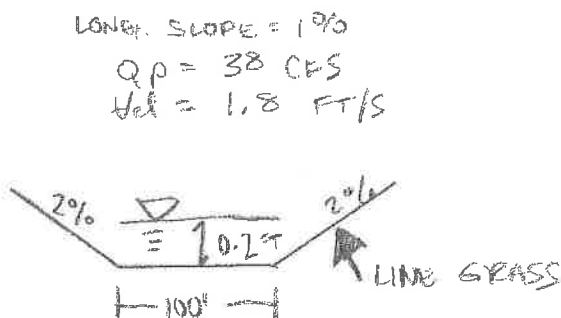 LONG. SLOPE = 1%
Qp = 38 CFS
Vel = 1.8 FT/S
2%
2%
0.2FT
LINE GRASS
100'